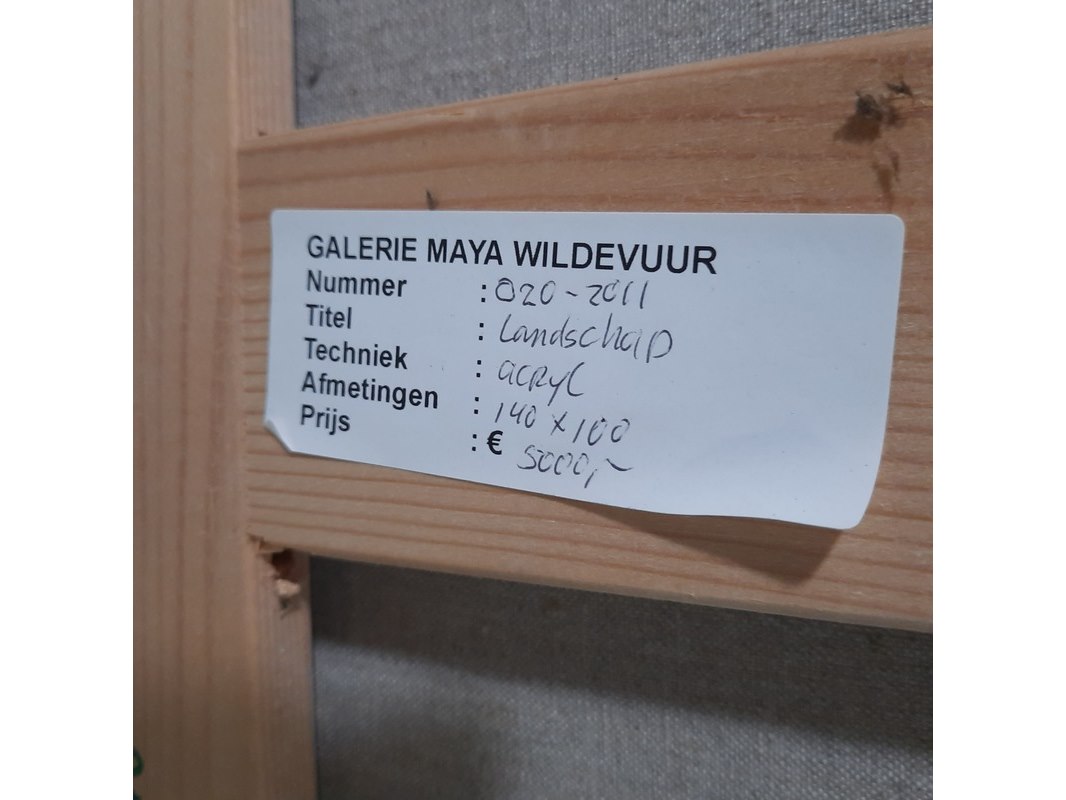 GALERIE MAYA WILDEVUUR
Nummer : 020-2011
Titel : Landschap
Techniek : acryl
Afmetingen : 140 x 100
Prijs : € 5000,-